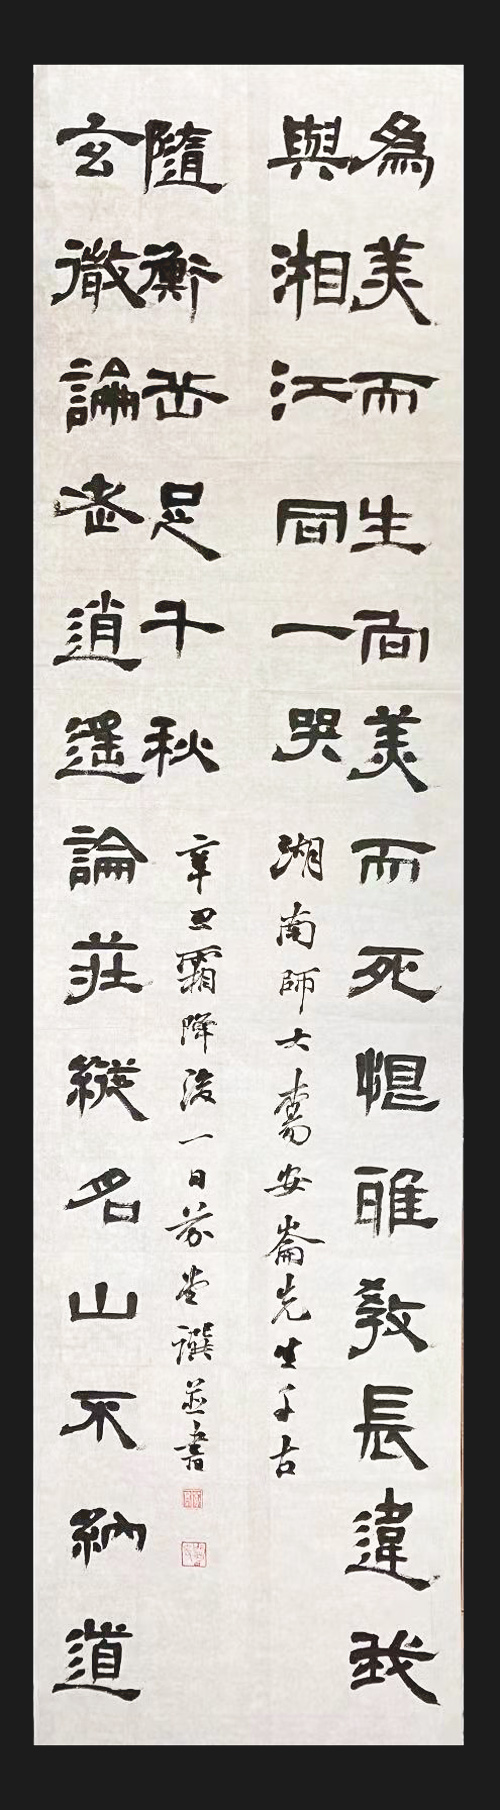 為美而生向美而死恨雅教長違我
與湘江同一哭
湖南師大楊安崙先生千古
玄微論老逍遙論莊縱名山不納道
隨衡岳足千秋
辛丑霜降後一日芬堂撰並書